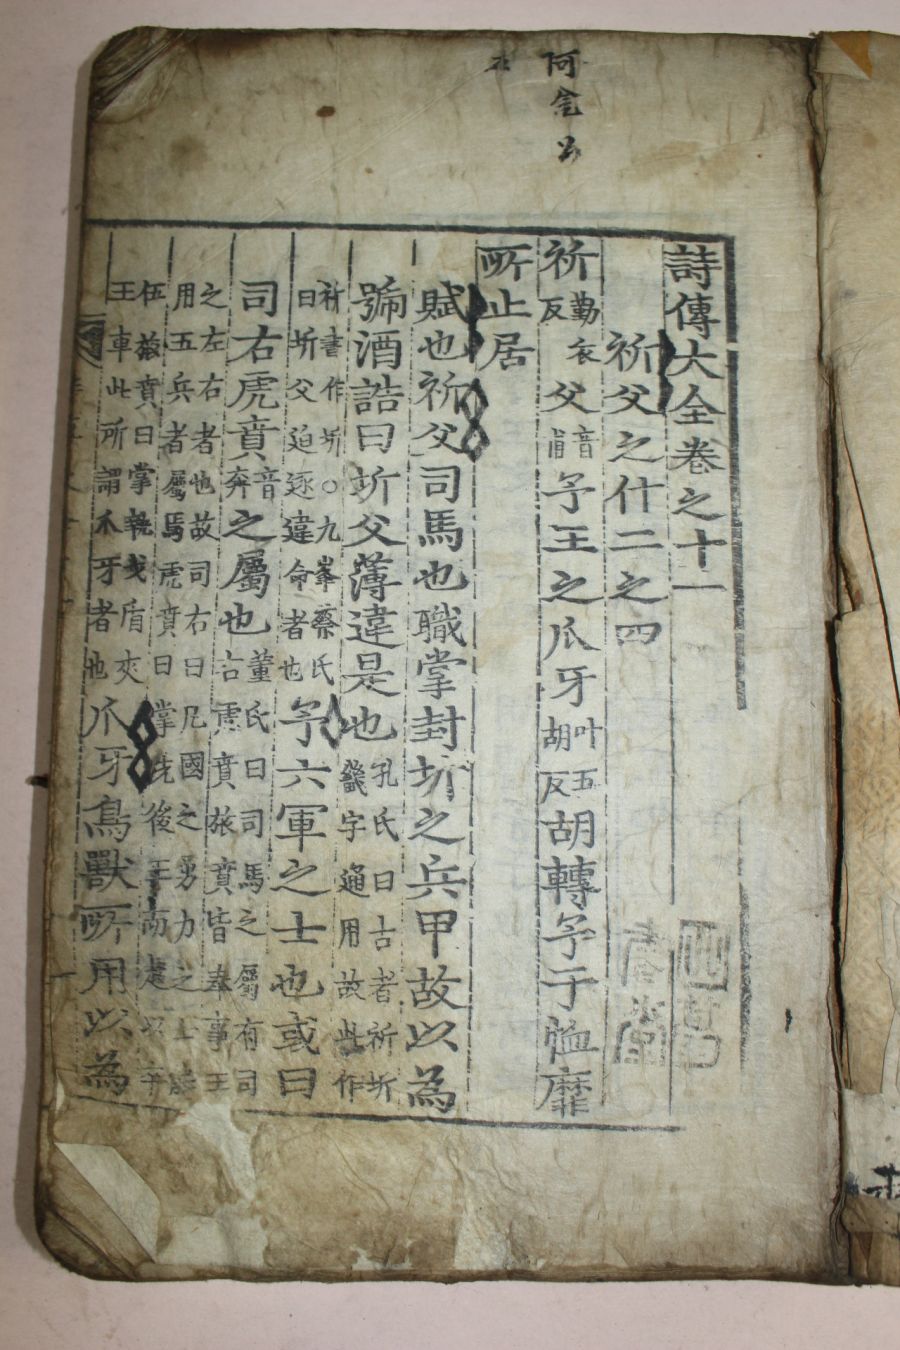 詩傳大全卷之十一
祈父之什二之四
祈勤衣反父音甫予王之爪牙叶五胡反胡轉予于恤靡
所止居
賦也祈父司馬也職掌封圻之兵甲故以為
號酒誥曰圻父薄違是也孔氏曰古者祈圻畿字通用故此作
祈書作圻○九峯蔡氏曰圻父迫逐違命者也予六軍之士也或曰
司右虎賁音奔之屬也董氏曰司馬之屬有司右虎賁旅賁皆奉事王
之左右者也故司右曰凡國之勇力之士能用五兵者屬焉虎賁曰掌先後王而趨以卒
伍旅賁曰掌執戈盾夾王車此所謂爪牙者也爪牙鳥獸所用以為
阿